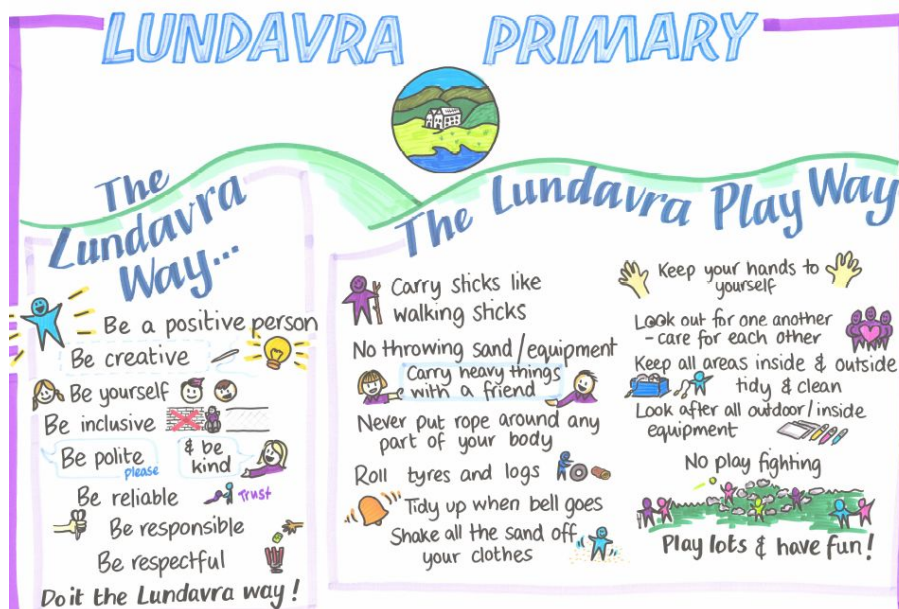 LUNDAVRA PRIMARY
The
Lundavra
Way...
Be a positive person
Be creative
Be yourself
Be inclusive
Be polite
please
& be
kind
Be reliable
Trust
Be responsible
Be respectful
Do it the Lundavra way!
The Lundavra Play Way
Carry sticks like
walking sticks
No throwing sand/equipment
Carry heavy things
with a friend
Never put rope around any
part of your body
Roll tyres and logs
Tidy up when bell goes
Shake all the sand off
your clothes
Keep your hands to
yourself
Look out for one another
- care for each other
Keep all areas inside & outside
tidy & clean
Look after all outdoor/inside
equipment
No play fighting
Play lots & have fun!